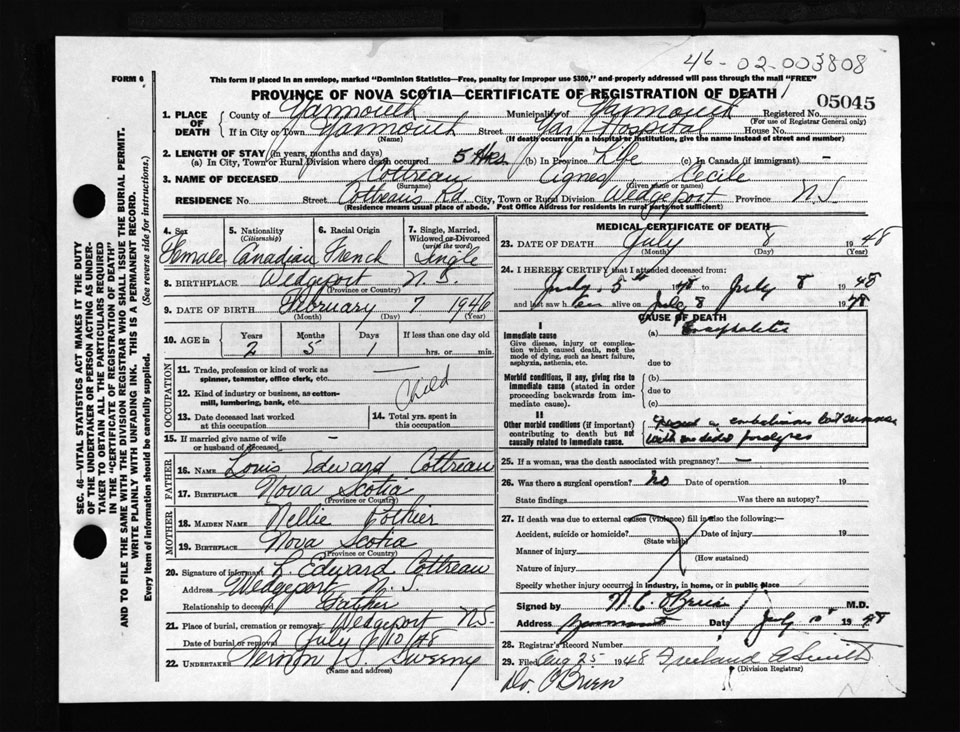 46-02-003808
FORM 6
This form if placed in an envelope, marked "Dominion Statistics—Free, penalty for improper use $300," and properly addressed will pass through the mail "FREE"
PROVINCE OF NOVA SCOTIA—CERTIFICATE OF REGISTRATION OF DEATH
05045
1. PLACE OF DEATH
County of Yarmouth Municipality of Yarmouth Registered No.
(For use of Registrar General only)
If in City or Town Yarmouth Street Yar Hospital House No.
(Name) (If death occurred in a hospital or institution, give the name instead of street and number)
2. LENGTH OF STAY (in years, months and days)
(a) In City, Town or Rural Division where death occurred 5 Hrs (b) In Province Life (c) In Canada (if immigrant) —
3. NAME OF DECEASED Cottreau Agnes Cecile
(Surname) (Given name or names)
RESIDENCE No. Street Cottreaus Rd. City, Town or Rural Division Wedgeport Province N.S.
(Residence means usual place of abode. Post Office Address for residents in rural parts not sufficient)
4. Sex Female
5. Nationality (Citizenship) Canadian
6. Racial Origin French
7. Single, Married, Widowed or Divorced (write the word) Single
8. BIRTHPLACE Wedgeport N.S.
(Province or Country)
9. DATE OF BIRTH February 7 1946
(Month) (Day) (Year)
10. AGE in Years 2 Months 5 Days 1 If less than one day old hrs. or min.
OCCUPATION
11. Trade, profession or kind of work as spinner, teamster, office clerk, etc. —
12. Kind of industry or business, as cotton-mill, lumbering, bank, etc. Child
13. Date deceased last worked at this occupation
14. Total yrs. spent in this occupation
15. If married give name of wife or husband of deceased —
FATHER
16. NAME Louis Edward Cottreau
17. BIRTHPLACE Nova Scotia
(Province or Country)
MOTHER
18. MAIDEN NAME Nellie Pothier
19. BIRTHPLACE Nova Scotia
(Province or Country)
20. Signature of informant L. Edward Cottreau
Address Wedgeport N.S.
Relationship to deceased Father
21. Place of burial, cremation or removal Wedgeport N.S.
Date of burial or removal July 10/48
22. UNDERTAKER Vernon S. Sweeny
(Name and address)
MEDICAL CERTIFICATE OF DEATH
23. DATE OF DEATH July 8 1948
(Month) (Day) (Year)
24. I HEREBY CERTIFY that I attended deceased from:
July 5th 1948 to July 8 1948
and last saw her alive on July 8 1948
CAUSE OF DEATH
I
Immediate cause
Give disease, injury or complication which caused death, not the mode of dying, such as heart failure, asphyxia, asthenia, etc.
(a) Encephalitis
due to
Morbid conditions, if any, giving rise to immediate cause (stated in order proceeding backwards from immediate cause).
(b)
due to
(c)
II
Other morbid conditions (if important) contributing to death but not causally related to immediate cause.
25. If a woman, was the death associated with pregnancy? —
26. Was there a surgical operation? no Date of operation 19
State findings Was there an autopsy?
27. If death was due to external causes (violence) fill in also the following:—
Accident, suicide or homicide? Date of injury 19
(State which)
Manner of injury
(How sustained)
Nature of injury
Specify whether injury occurred in industry, in home, or in public place
Signed by W. C. O'Brien M.D.
Address Yarmouth Date July 10 1948
28. Registrar's Record Number
29. Filed Aug 25 1948 Freeland A Smith
(Division Registrar)
Dr. O'Brien
SEC. 46—VITAL STATISTICS ACT MAKES IT THE DUTY
OF THE UNDERTAKER OR PERSON ACTING AS UNDER-
TAKER TO OBTAIN ALL THE PARTICULARS REQUIRED
IN THE "CERTIFICATE OF REGISTRATION OF DEATH"
AND TO FILE THE SAME WITH THE DIVISION REGISTRAR WHO SHALL ISSUE THE BURIAL PERMIT.
WRITE PLAINLY WITH UNFADING INK. THIS IS A PERMANENT RECORD.
Every item of information should be carefully supplied. (See reverse side for instructions.)